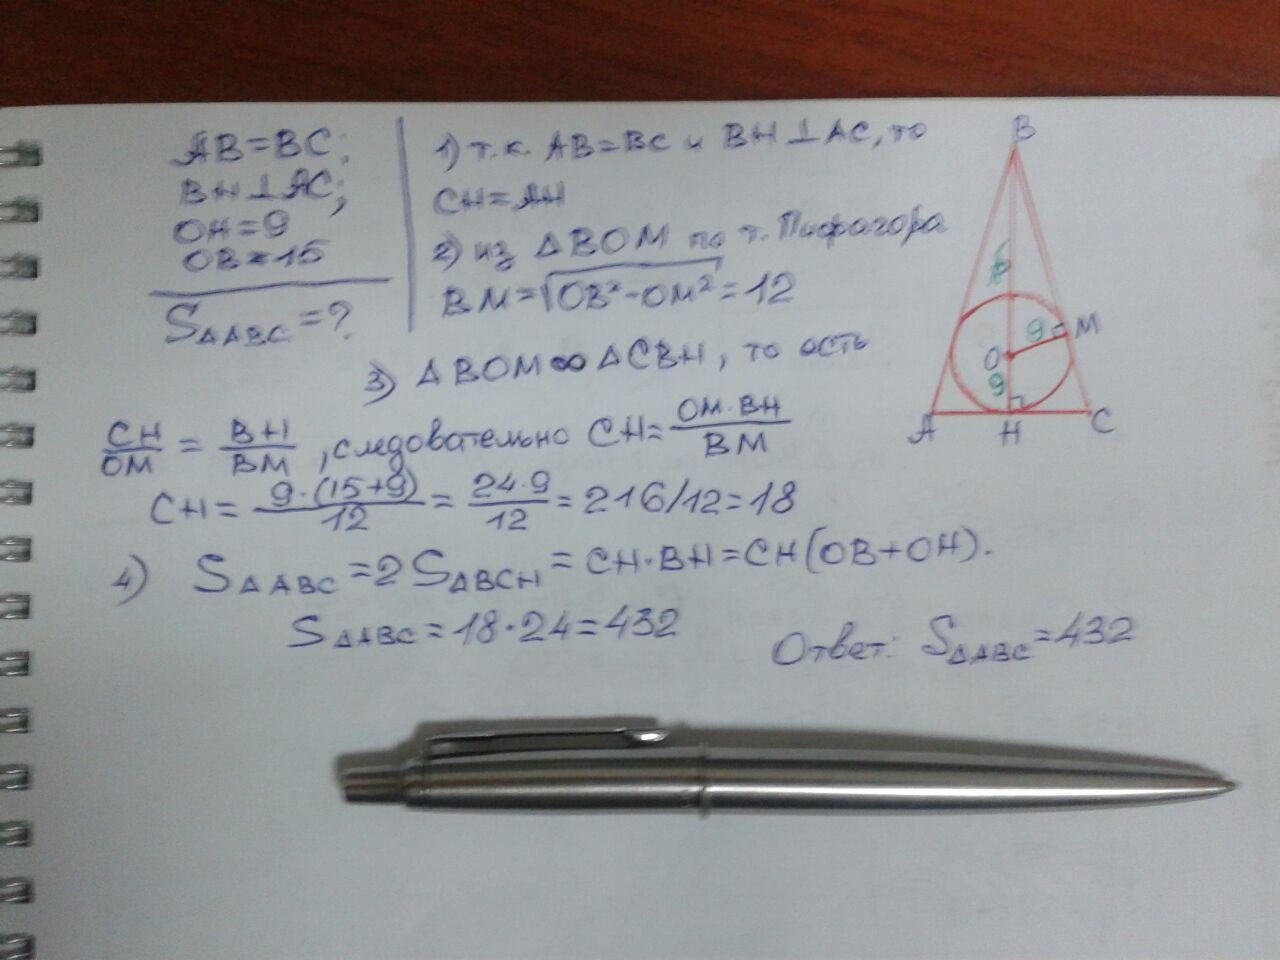 AB=BC;
BH⊥AC;
OH=9
OB=15
S△ABC=?
1) т.к. AB=BC и BH⊥AC, то
CH=AH
2) из △BOM по т. Пифагора
BM=√OB²-OM²=12
3) △BOM∞△CBH, то есть
CH/OM = BH/BM, следовательно CH= OM·BH/BM
CH= 9·(15+9)/12 = 24·9/12 = 216/12=18
4) S△ABC=2S△BCH=CH·BH=CH(OB+OH).
S△ABC=18·24=432
Ответ: S△ABC=432
B
9
M
O
9
A
H
C